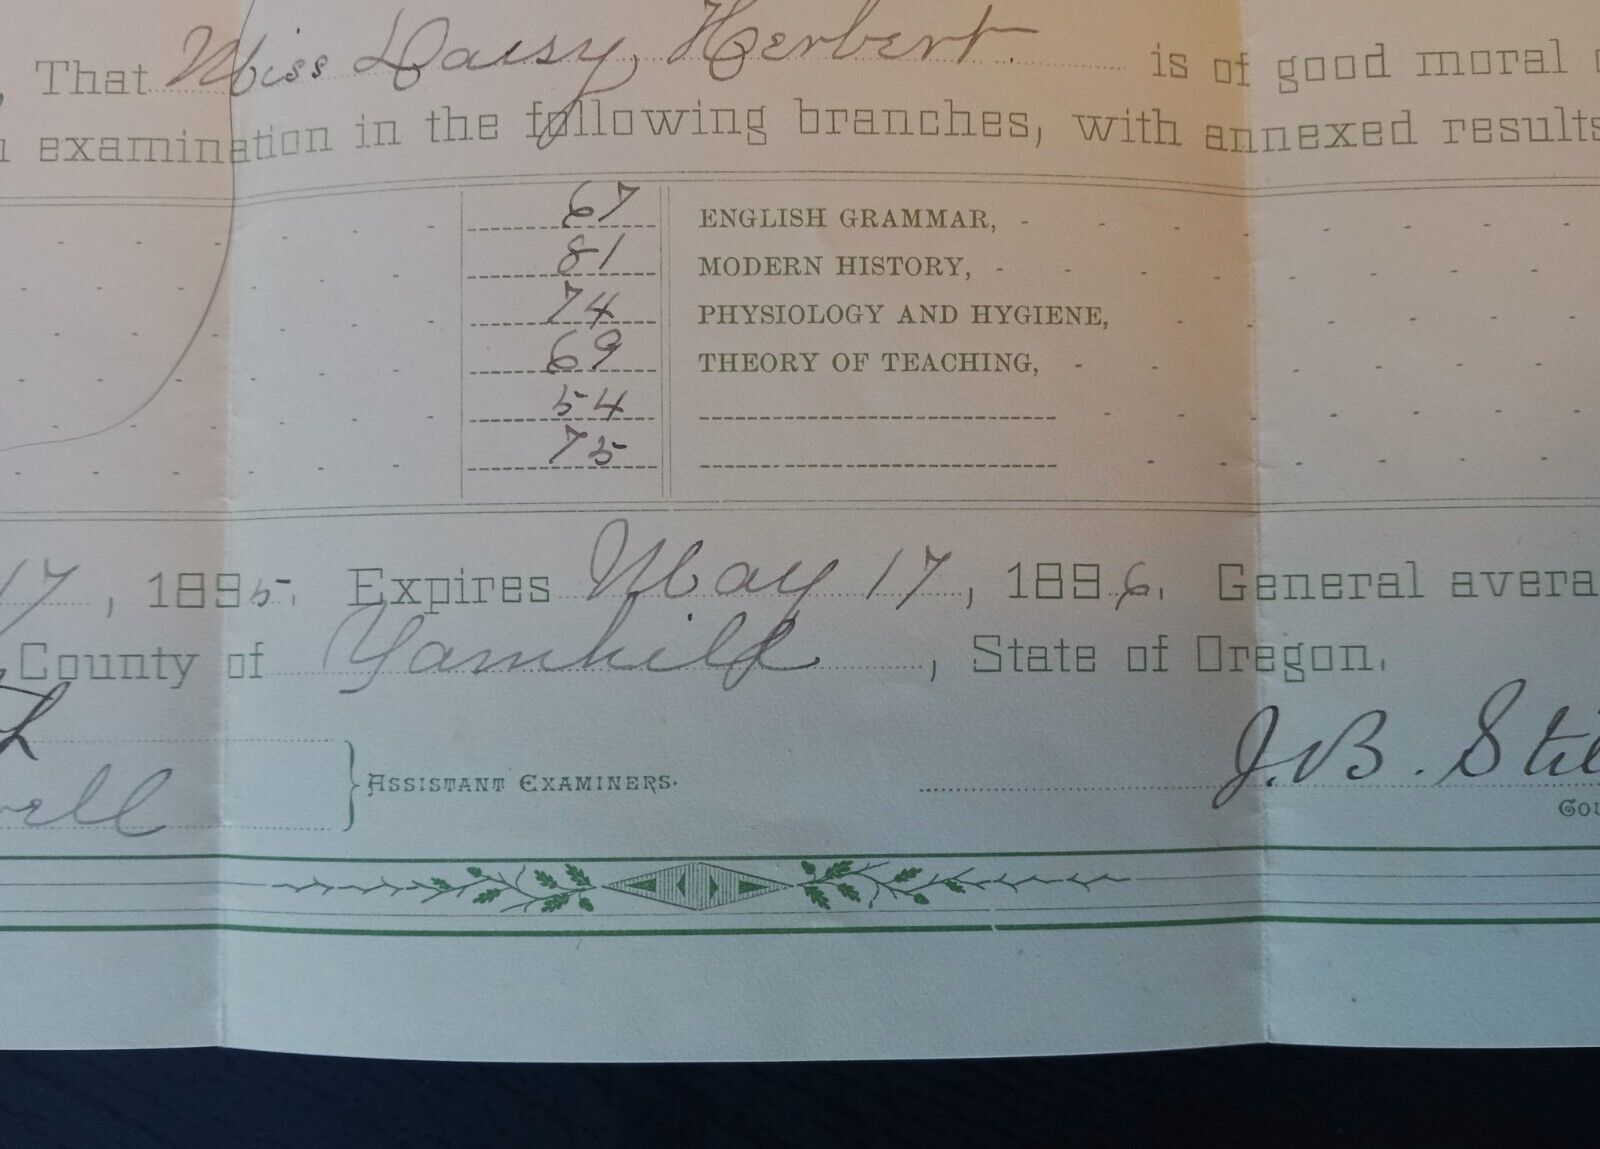 , That Miss Daisy Herbert. is of good moral
examination in the following branches, with annexed results
67 ENGLISH GRAMMAR,
81 MODERN HISTORY,
74 PHYSIOLOGY AND HYGIENE,
69 THEORY OF TEACHING,
54
75
17, 1895. Expires May 17, 1896. General avera
County of Yamhill, State of Oregon.
J. B. Stil
ell
ASSISTANT EXAMINERS.
COU